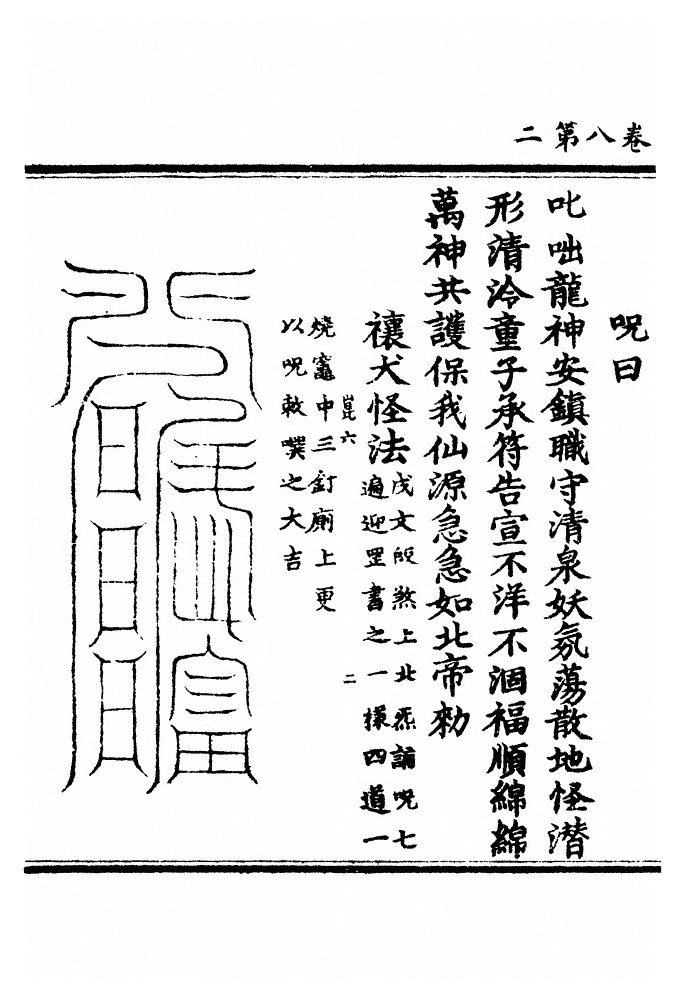 卷八第二
呪曰
叱咄龍神安鎮職守清泉妖氛蕩散地怪潛
形清泠童子承符告宣不洋不涸福順綿綿
萬神共護保我仙源急急如北帝勑
禳犬怪法
戌文㫁煞上北炁誦呪七
遍迎罡書之一樣四道一
崑六
二
燒竈中三釘廟上更
以呪敕噀之大吉